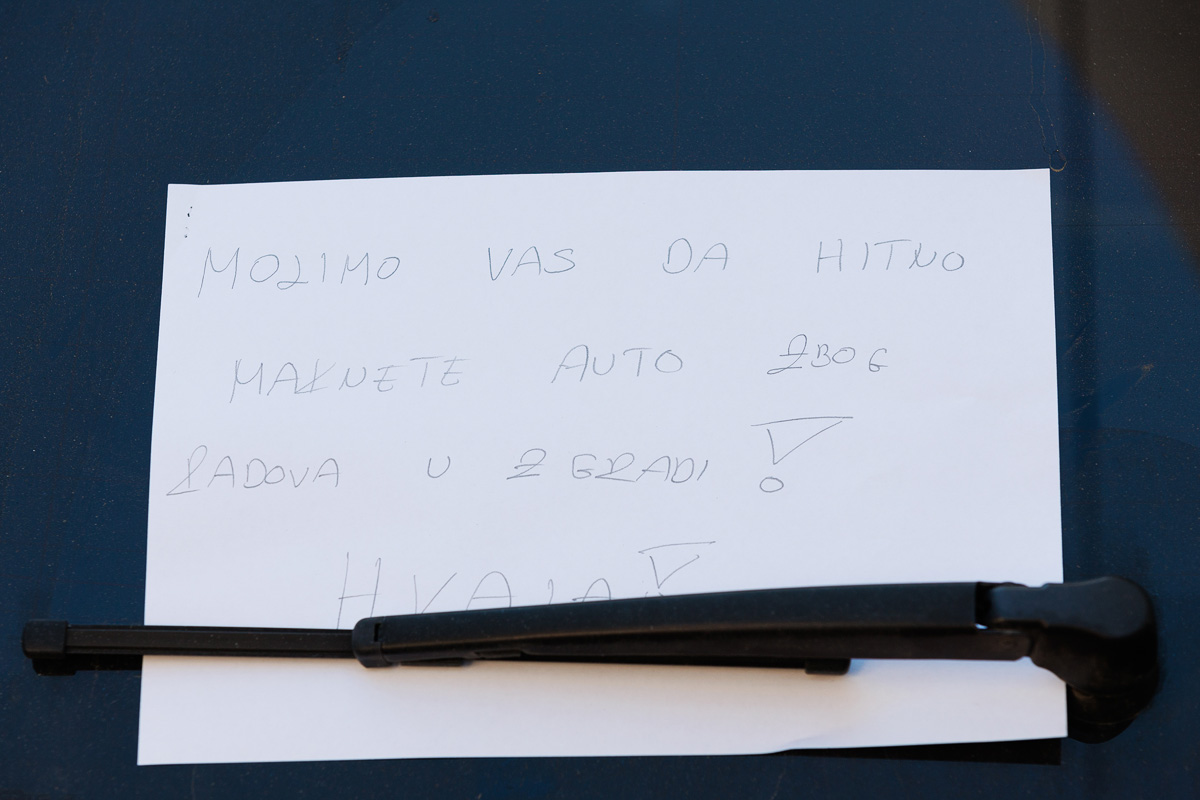 MOLIMO VAS DA HITNO
MAKNETE AUTO ZBOG
RADOVA U ZGRADI!
HVALA!